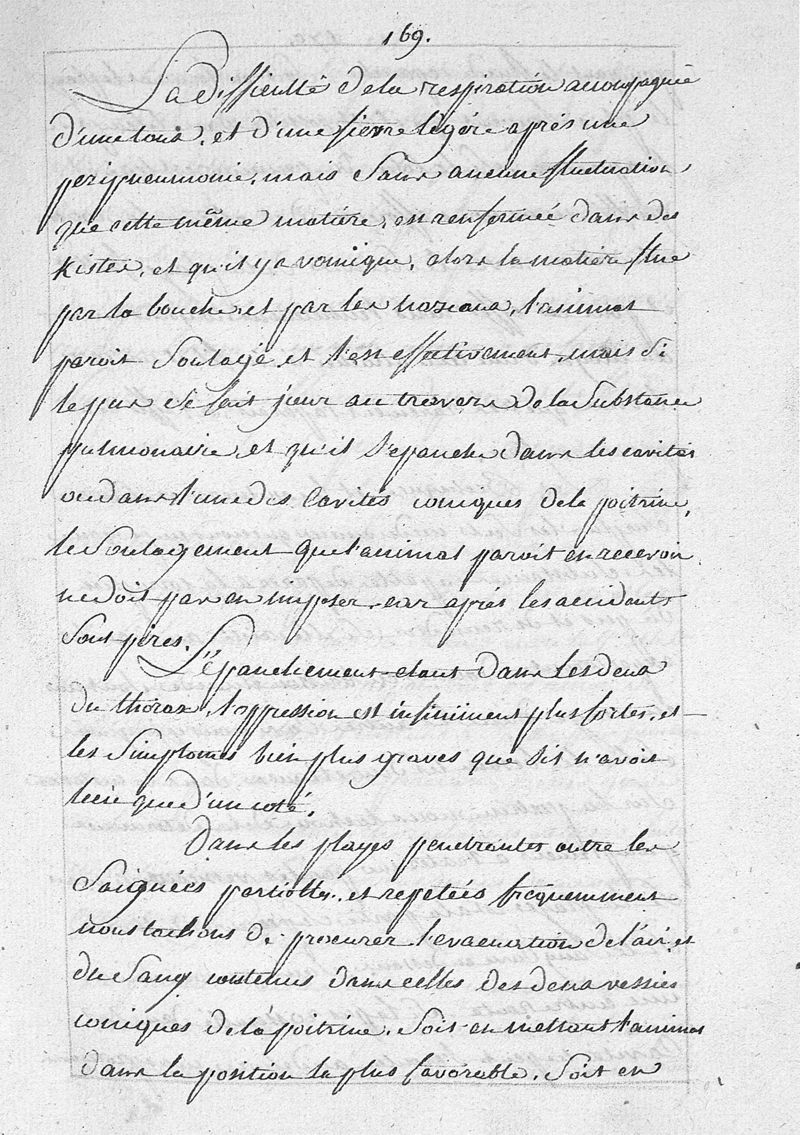 169.
La difficulté de la respiration accompagnée
d'une toux, et d'une fievre légere aprés une
peripneumonie, mais Sans aucune fluctuation
que cette même matiére, en renfermeé dans des
Kistes, et qu'il y a vomique, alors la matiére flue
par la bouche et par les nazeaux, l'animal
paroit Soulagé et l'est effectivement, mais Si
le pus Se fait jour au travers de la Substance
pulmonaire, et qu'il S'epanche dans les cavités
ou dans l'une des Cavités coniques de la poitrine,
le Soulagement que l'animal paroit en recevoir
ne doit pas en imposer, car aprés les accidents
Sont pires.
L'épanchement etant dans les deux
du thorax, l'oppression est infiniment plus fortes, et
les Simptomes bien plus graves que s'il n'avoit
lieu que d'un coté.
Dans les playes penetrantes outre les
Saignées partielles, et repetées frequemment
nous tachons de procurer l'evacuation de l'air et
du Sang contenus dans celles des deux vessies
coniques de la poitrine, Soit en mettant l'animal
dans la position la plus favorable, Soit en